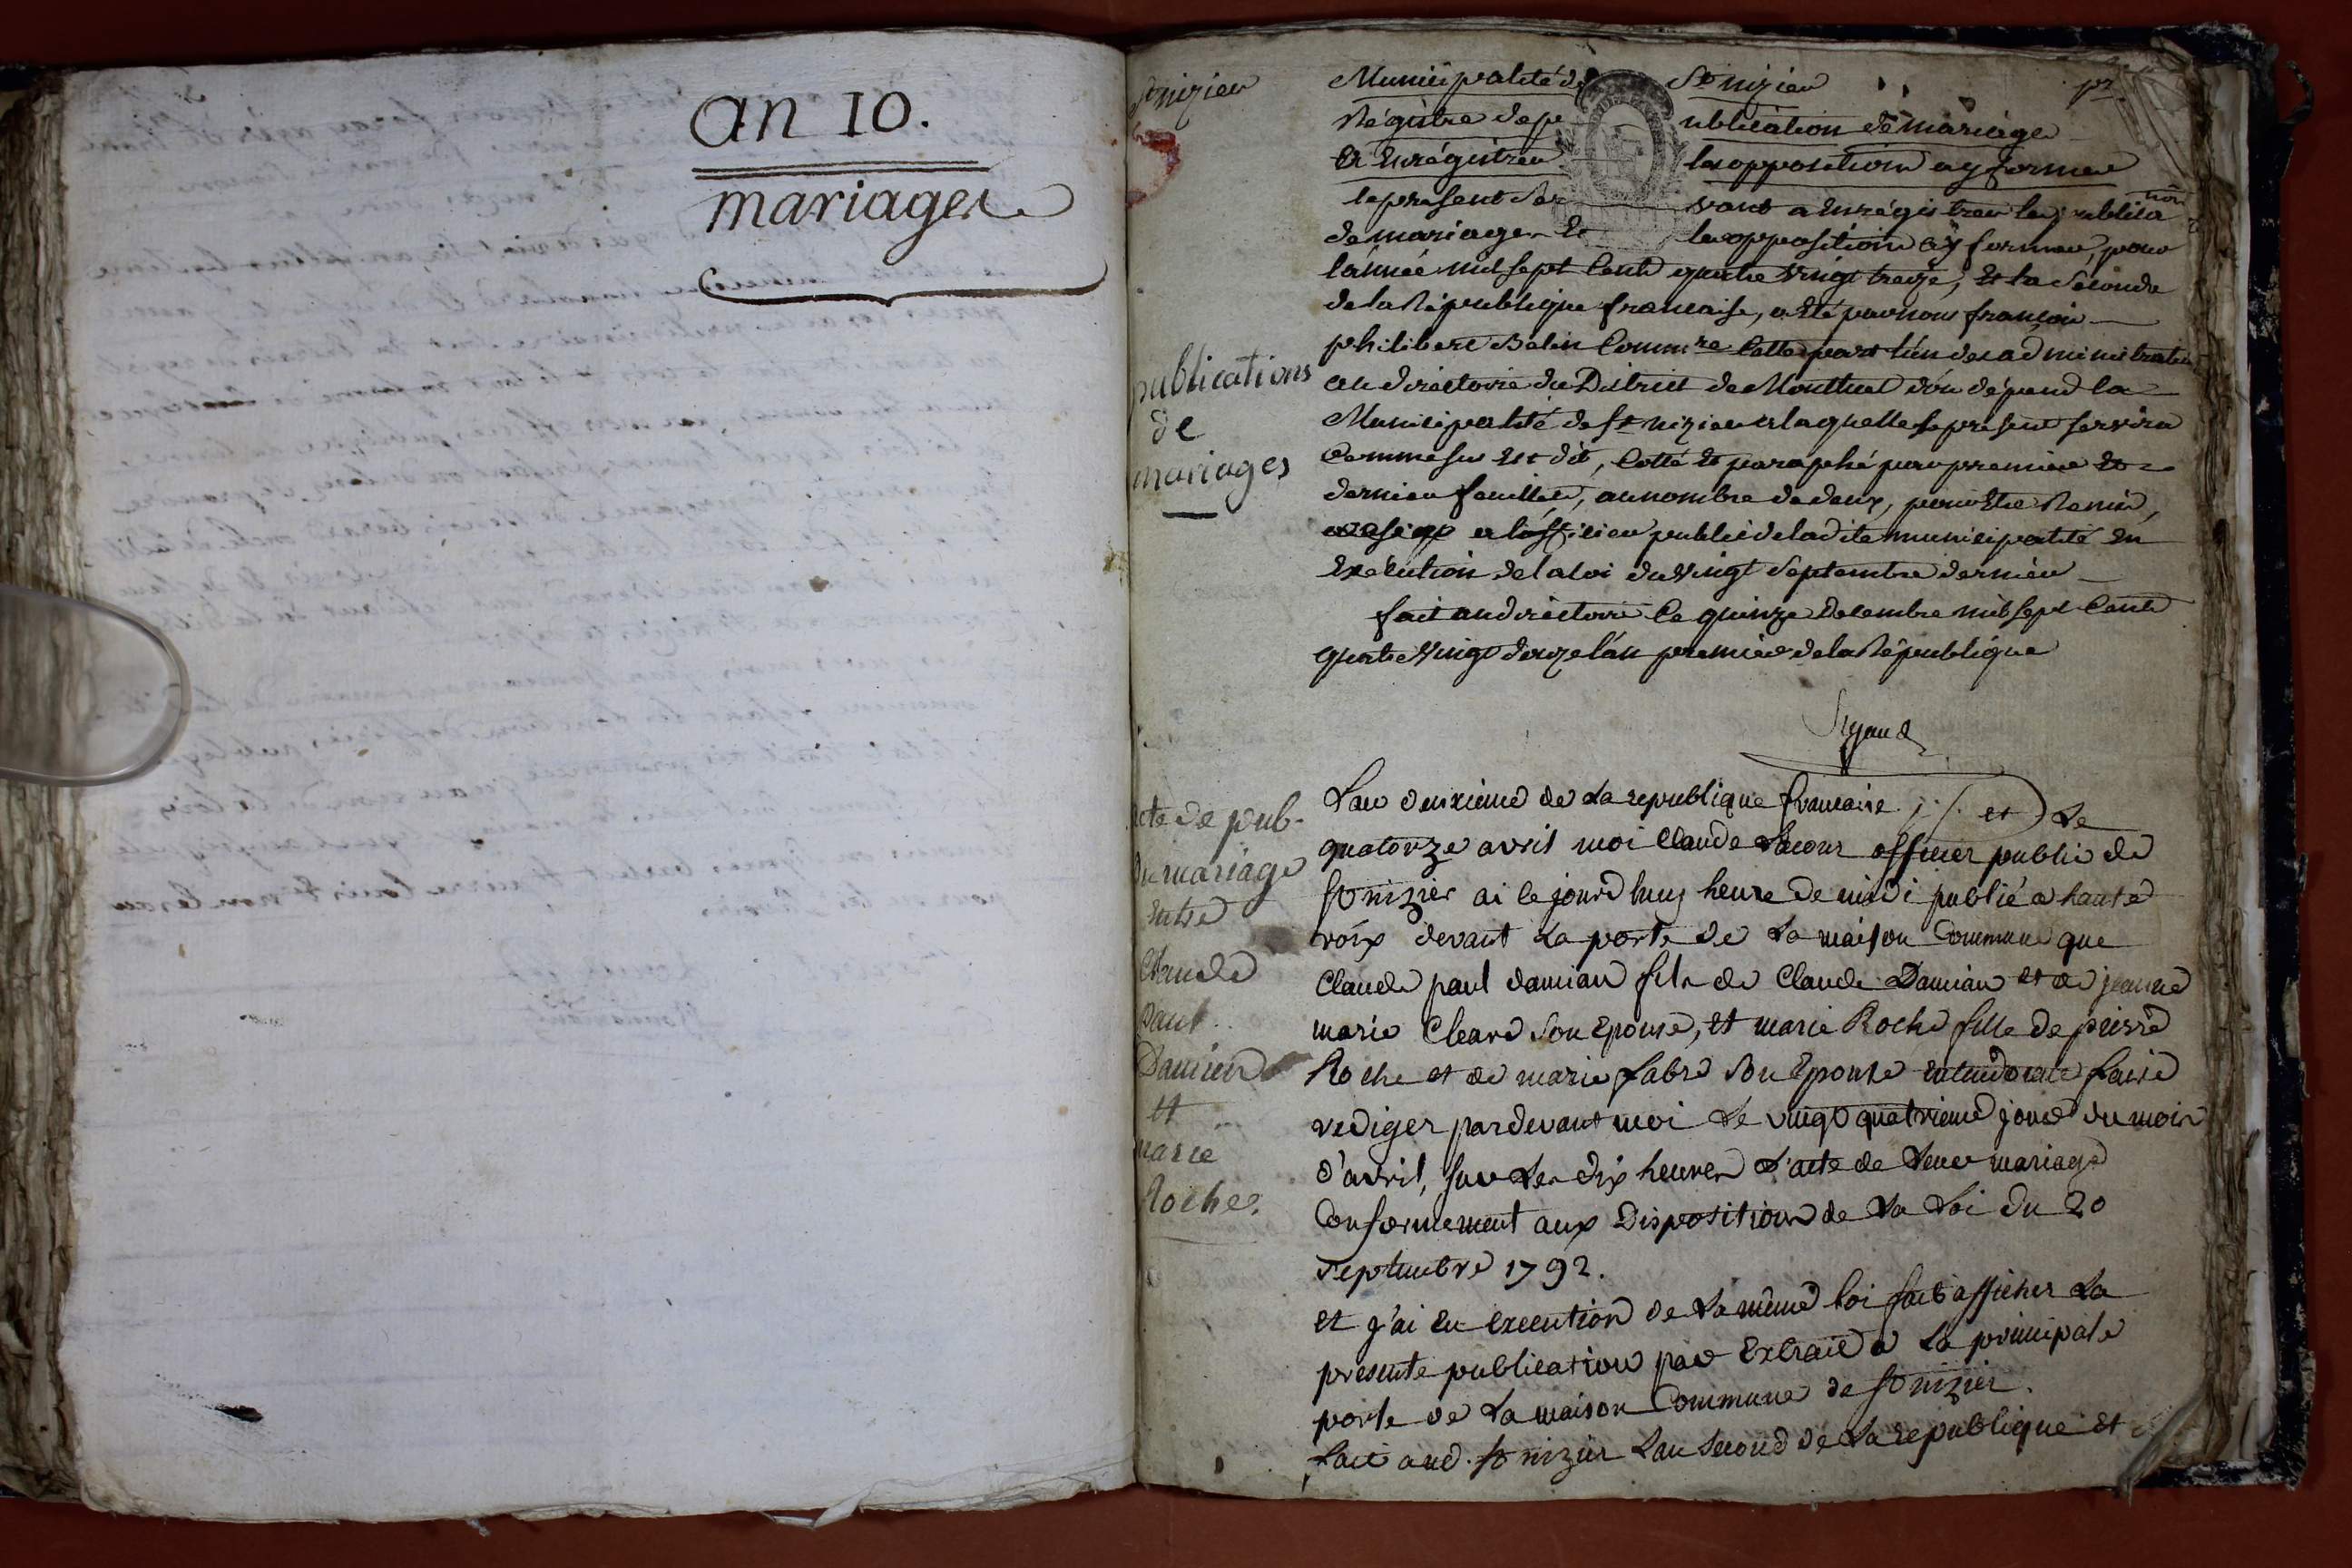 an 10.
mariages
St nizier
publications
de
mariages
Municipalité de St nizier
Régistre de publication de mariage
Et Enrégistrer les opposition a y former
le présent servant a Enrégistrer les publication
de mariages Et les opposition a y former, pour
l'année mil sept Cents quatre Vingt treize, Et la seconde
de la République francaise, a Eté par nous françois
philibert Belin Commre Cette part l'un des administrateurs
au directoire du District de Montluel d'ou dépend la
Municipalité de St nizier a laquelle le présent servira
Comme sus Est dit, Cotté Et paraphé par premier Et
dernier feuillets, au nombre de deux, pour Etre Remis,
a l'officier public de la dite municipalité En
Exécution de la loi du Vingt Septembre dernier
fait au directoire le quinze Décembre mil sept Cents
quatre Vingt douze l'an premier de la République
acte de pub-
du mariage
Entre
Claude
Paul
Damien
et
marie
Roche.
L'an deuxieme de La republique francaise ./. et Le
quatorze avril moi Claude officier public de
St nizier ai le jourd'huy heure de midi publié a haute
voix devant La porte de La maison Commune que
Claude paul damian fils de Claude Damian et de jeanne
marie Cleard Son Epouse, et marie Roche fille de pierre
Roche et de marie fabre Son Epouse entendoient faire
rediger pardevant moi Le vingt quatrieme jour du mois
d'avril, sur Les dix heures L'acte de Leur mariage
Conformement aux Dispositions de La Loi du 20
Septembre 1792.
et j'ai en execution de La même loi fait afficher La
presente publication par Extrait a La principale
porte de La maison Commune de St nizier.
fait aud. St nizier L'an second de La republique et